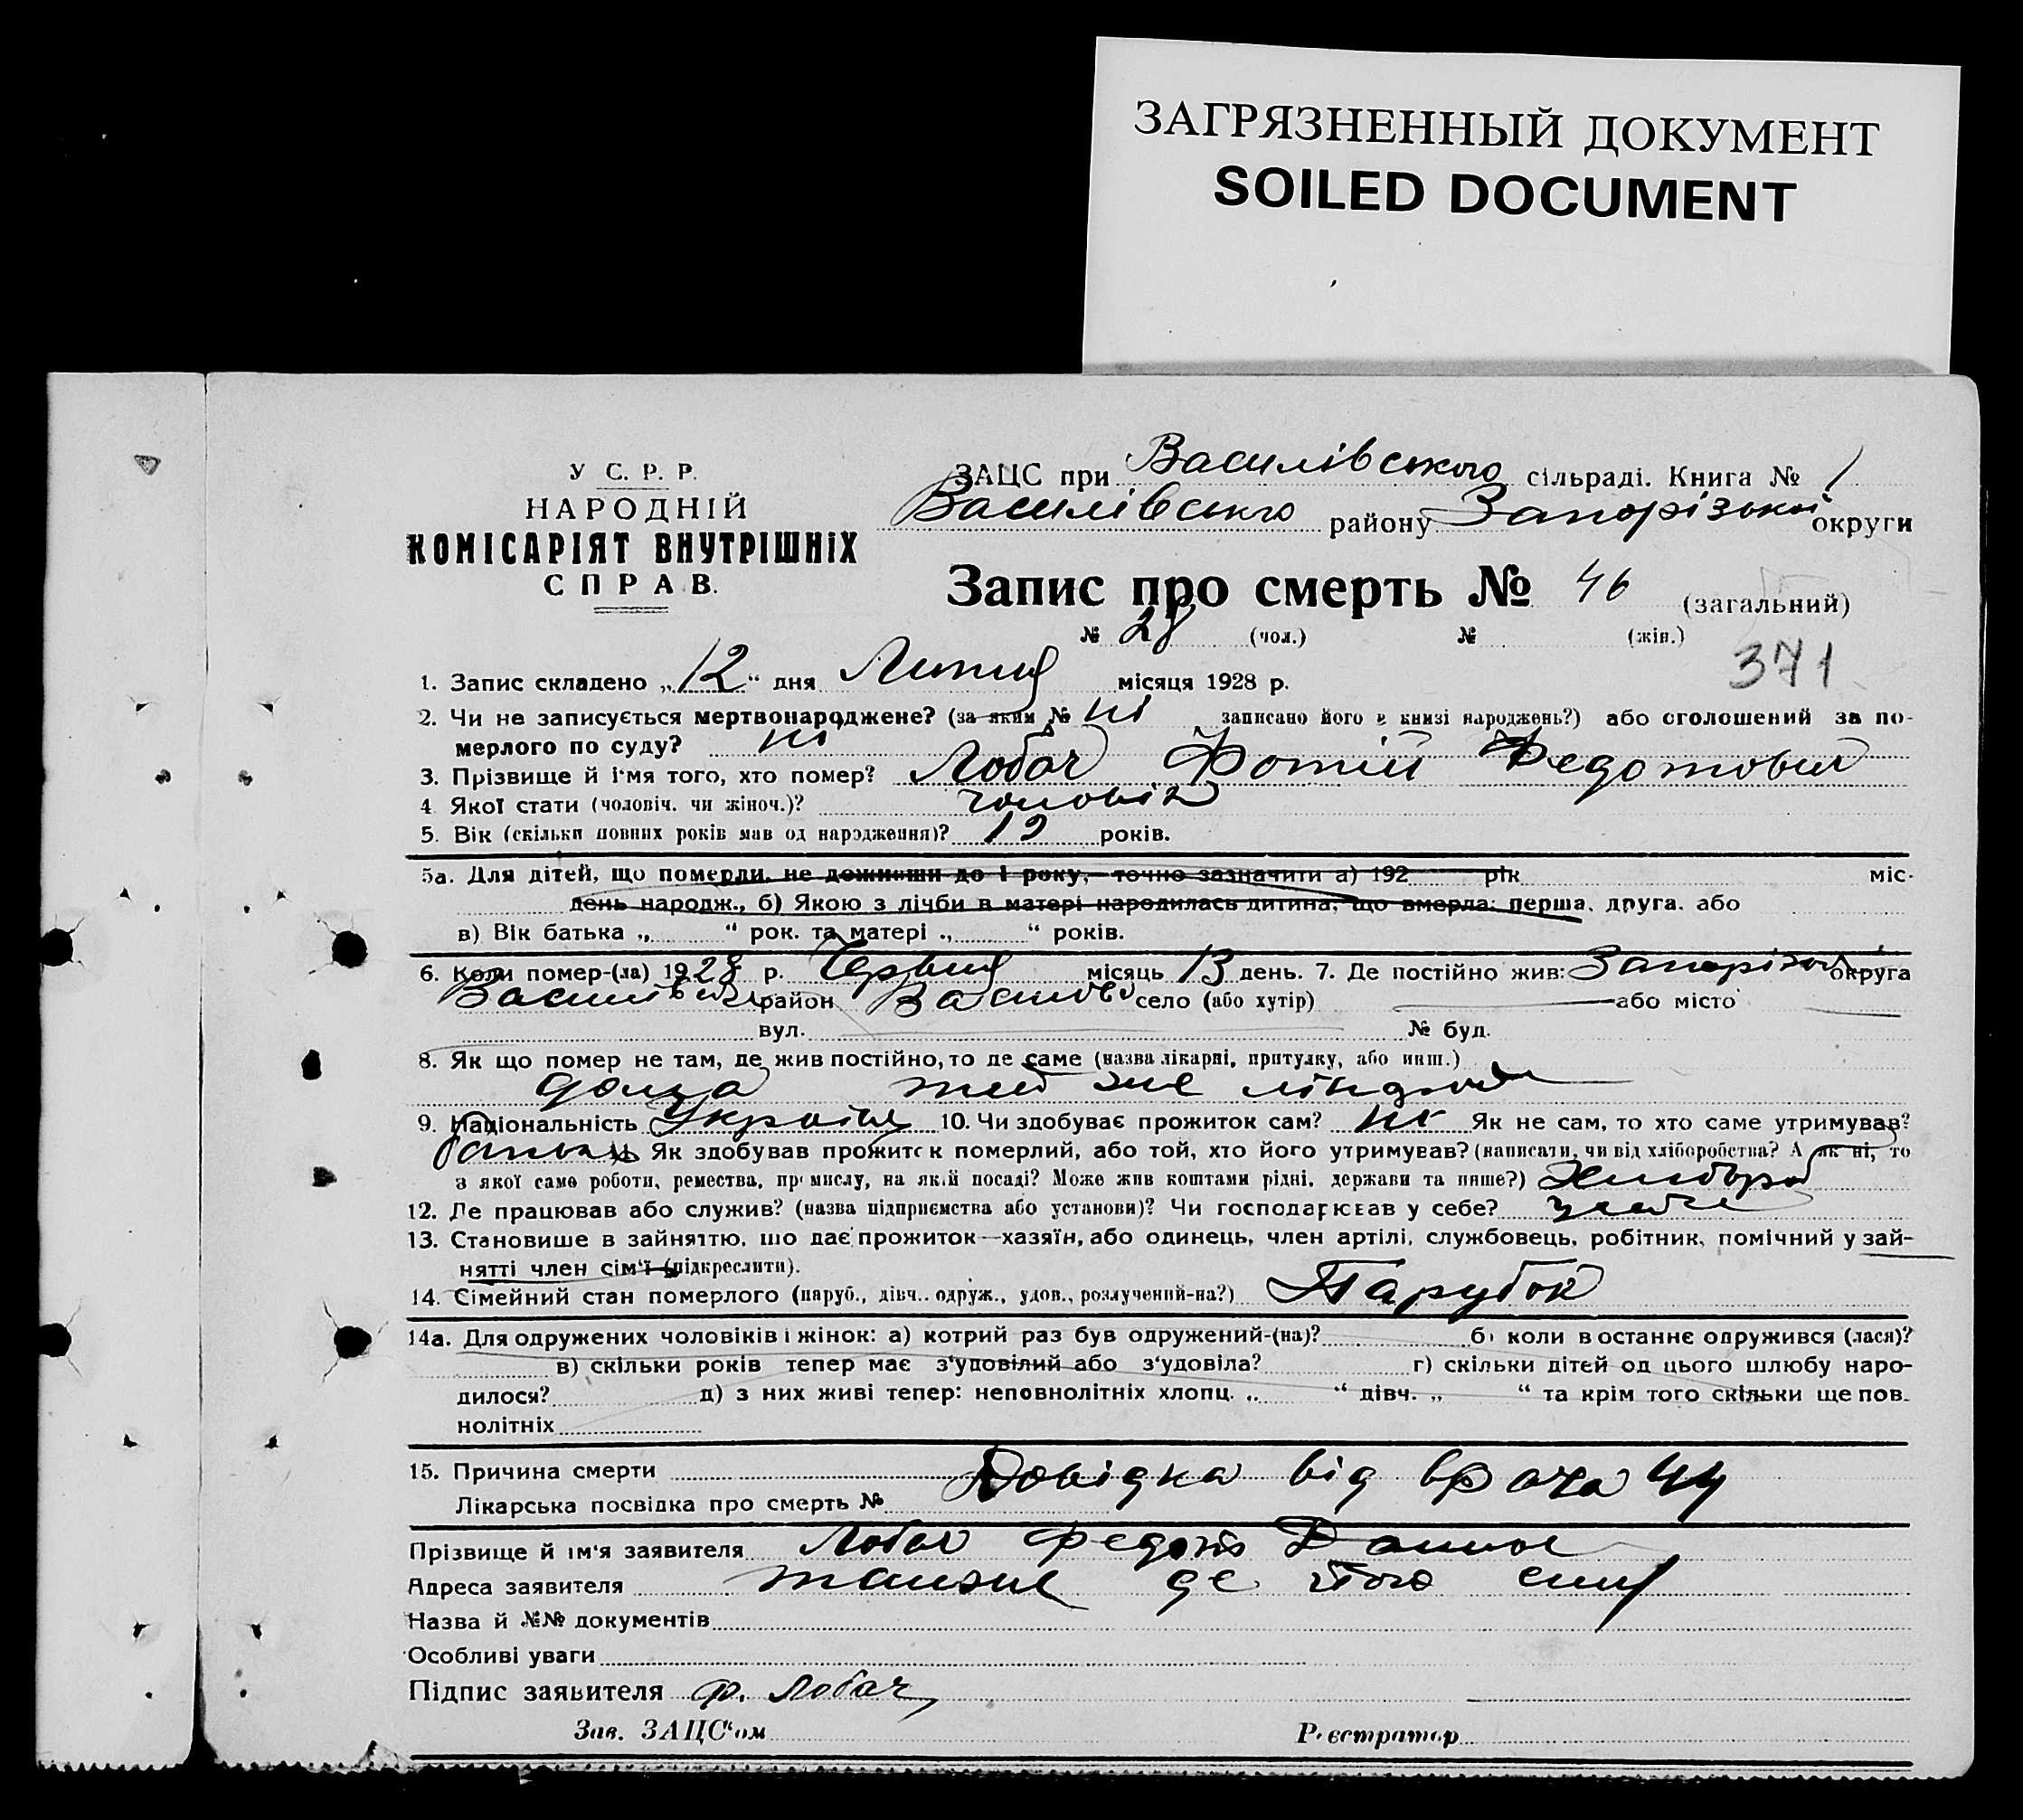 ЗАГРЯЗНЕННЫЙ ДОКУМЕНТ
SOILED DOCUMENT
У С. Р. Р.
НАРОДНІЙ
КОМІСАРІЯТ ВНУТРІШНІХ
СПРАВ.
ЗАЦС при Василівського сільраді. Книга № 1
Василівського району Запорізької округи
Запис про смерть № 46 (загальний)
№ 28 (чол.) № (жін.)
371
1. Запис складено „12“ дня Липня місяця 1928 р.
2. Чи не записується мертвонароджене? (за яким № ні записано його в книзі народжень?) або оголошений за по-
мерлого по суду? ні
3. Прізвище й ім'я того, хто помер? Лобач Фотій Федотович
4. Якої стати (чоловіч. чи жіноч.)? чоловік
5. Вік (скільки повних років мав од народження)? 19 років.
5а. Для дітей, що померли, не доживши до 1 року, точно зазначити а) 192 рік міс.
день народж., б) Якою з лічби в матері народилась дитина, що вмерла: перша, друга, або
в) Вік батька „ “ рок. та матері „ “ років.
6. Коли помер-(ла) 1928 р. Червня місяць 13 день. 7. Де постійно жив: Запорізьк округа
район село (або хутір) або місто
вул. № буд.
8. Як що помер не там, де жив постійно, то де саме (назва лікарні, притулку, або инш.)
дома
9. Національність Україн 10. Чи здобуває прожиток сам? ні Як не сам, то хто саме утримував?
батько 11. Як здобував прожиток померлий, або той, хто його утримував? (написати, чи від хліборобства? А як ні, то
з якої саме роботи, ремества, промислу, на якій посаді? Може жив коштами рідні, держави та инше?) Хлибороб
12. Де працював або служив? (назва підприємства або установи)? Чи господарював у себе? у себе
13. Становище в зайняттю, що дає прожиток—хазяїн, або одинець, член артілі, службовець, робітник, помічний у зай-
нятті член сім'ї (підкреслити).
14. Сімейний стан померлого (паруб., дівч.. одруж., удов., розлучений-на?) Парубок
14а. Для одружених чоловіків і жінок: а) котрий раз був одружений-(на)? б) коли в останнє одружився (лася)?
в) скільки років тепер має з'удовілий або з'удовіла? г) скільки дітей од цього шлюбу наро-
дилося? д) з них живі тепер: неповнолітніх хлопц. „ “ дівч. „ “ та крім того скільки ще пов-
нолітніх
15. Причина смерти Довідка від врача 44
Лікарська посвідка про смерть №
Прізвище й ім'я заявителя Лобач Федот
Адреса заявителя де його син
Назва й №№ документів
Особливі уваги
Підпис заявителя Ф. Лобач
Зав. ЗАЦС'ом Реєстратор